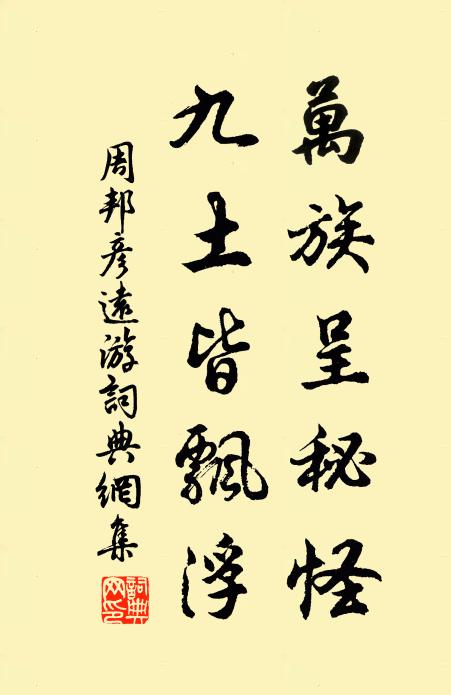 萬族呈秘怪
九土皆飄浮
周邦彦遠游詞典網集
詞典网印